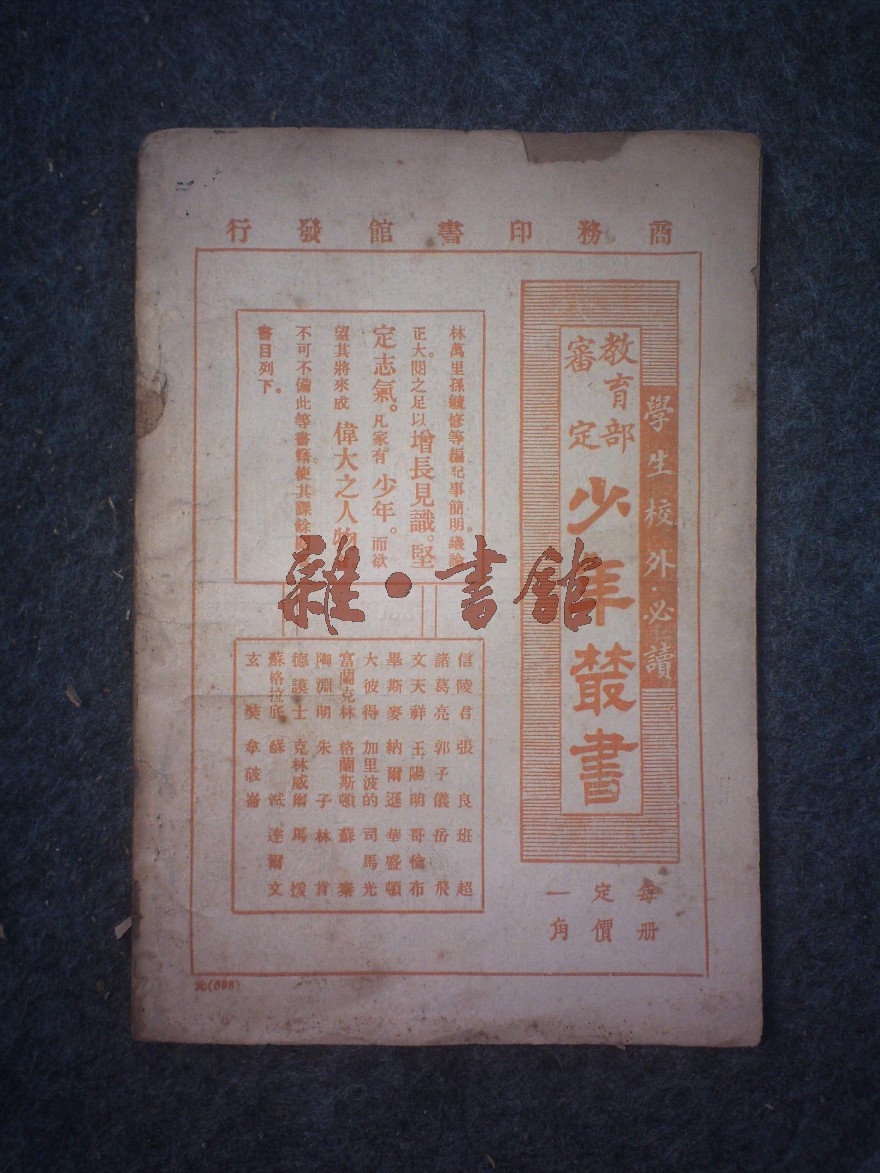 商務印書館發行
學生校外必讀
教育部
審定
少年叢書
每册
定價
一角
林萬里孫毓修等編記事簡明。議論
正大。閱之足以增長見識。堅
定志氣。凡家有少年。而欲
望其將來成偉大之人物
不可不備此等書籍。使其課餘
書目列下。
信陵君 張良 班超
諸葛亮 郭子儀 岳飛
文天祥 王陽明 哥倫布
畢斯麥 納爾遜 華盛頓
大彼得 加里波的 司馬光
富蘭克林 格蘭斯頓 蘇秦
陶淵明 朱子 林肯
德謨士 克林威爾 馬援
蘇格拉底 蘇軾 達爾文
玄奘 拿破崙
元(698)
雜·書館